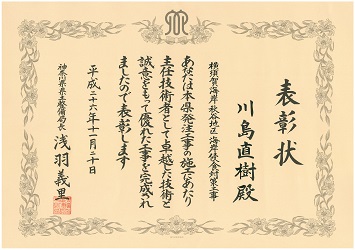 表彰状
川島直樹殿
横須賀海岸 秋谷地区 海岸侵食対策工事
あなたは本県発注工事の施工にあたり
主任技術者として卓越した技術と
誠意をもって優れた工事を完成され
ましたので表彰します
平成二十六年十一月二十日
神奈川県県土整備局長 浅羽義里